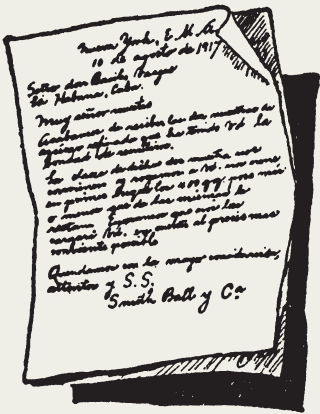 Nueva York, E. U. A.
10 de agosto de 1917
Señor don Basilio Vargas
La Habana, Cuba.
Muy señor nuestro
Acabamos de recibir las dos muestras de
azúcar refinado que ha tenido Vd. la
bondad de remitirnos.
Las clases de dichas dos muestras nos
convienen y rogamos a Vd. nos
en primer
o menos que de las mismas le
restan. Esperamos que nos las
Vd. al precio más
conveniente posible
Quedamos con la mayor consideración,
atentos y S. S.
Smith Ball y Cª